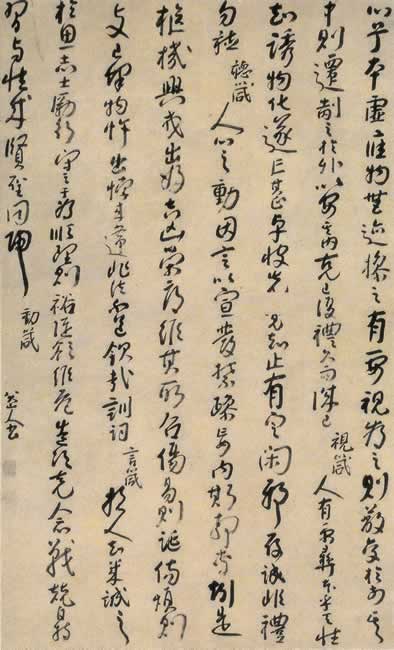 心兮本虛應物無迹操之有要視為之則蔽交於前其
中則遷制之於外以安其內克己復禮久而誠已 視箴 人有秉彝本乎天性
知誘物化遂亡其卓彼先覺知止有定閑邪存誠非禮
勿聽 聽箴 人心之動因言以宣發禁躁妄內斯靜專矧是
樞機興戎出好吉凶榮辱維其所召傷易則誕傷煩則
支己肆物忤出悖來違非法不道欽哉訓詞 言箴 哲人知幾誠之
於思志士勵行守之于為順理則裕從欲維危造次克念戰兢自持
習與性成賢聖同歸 動箴